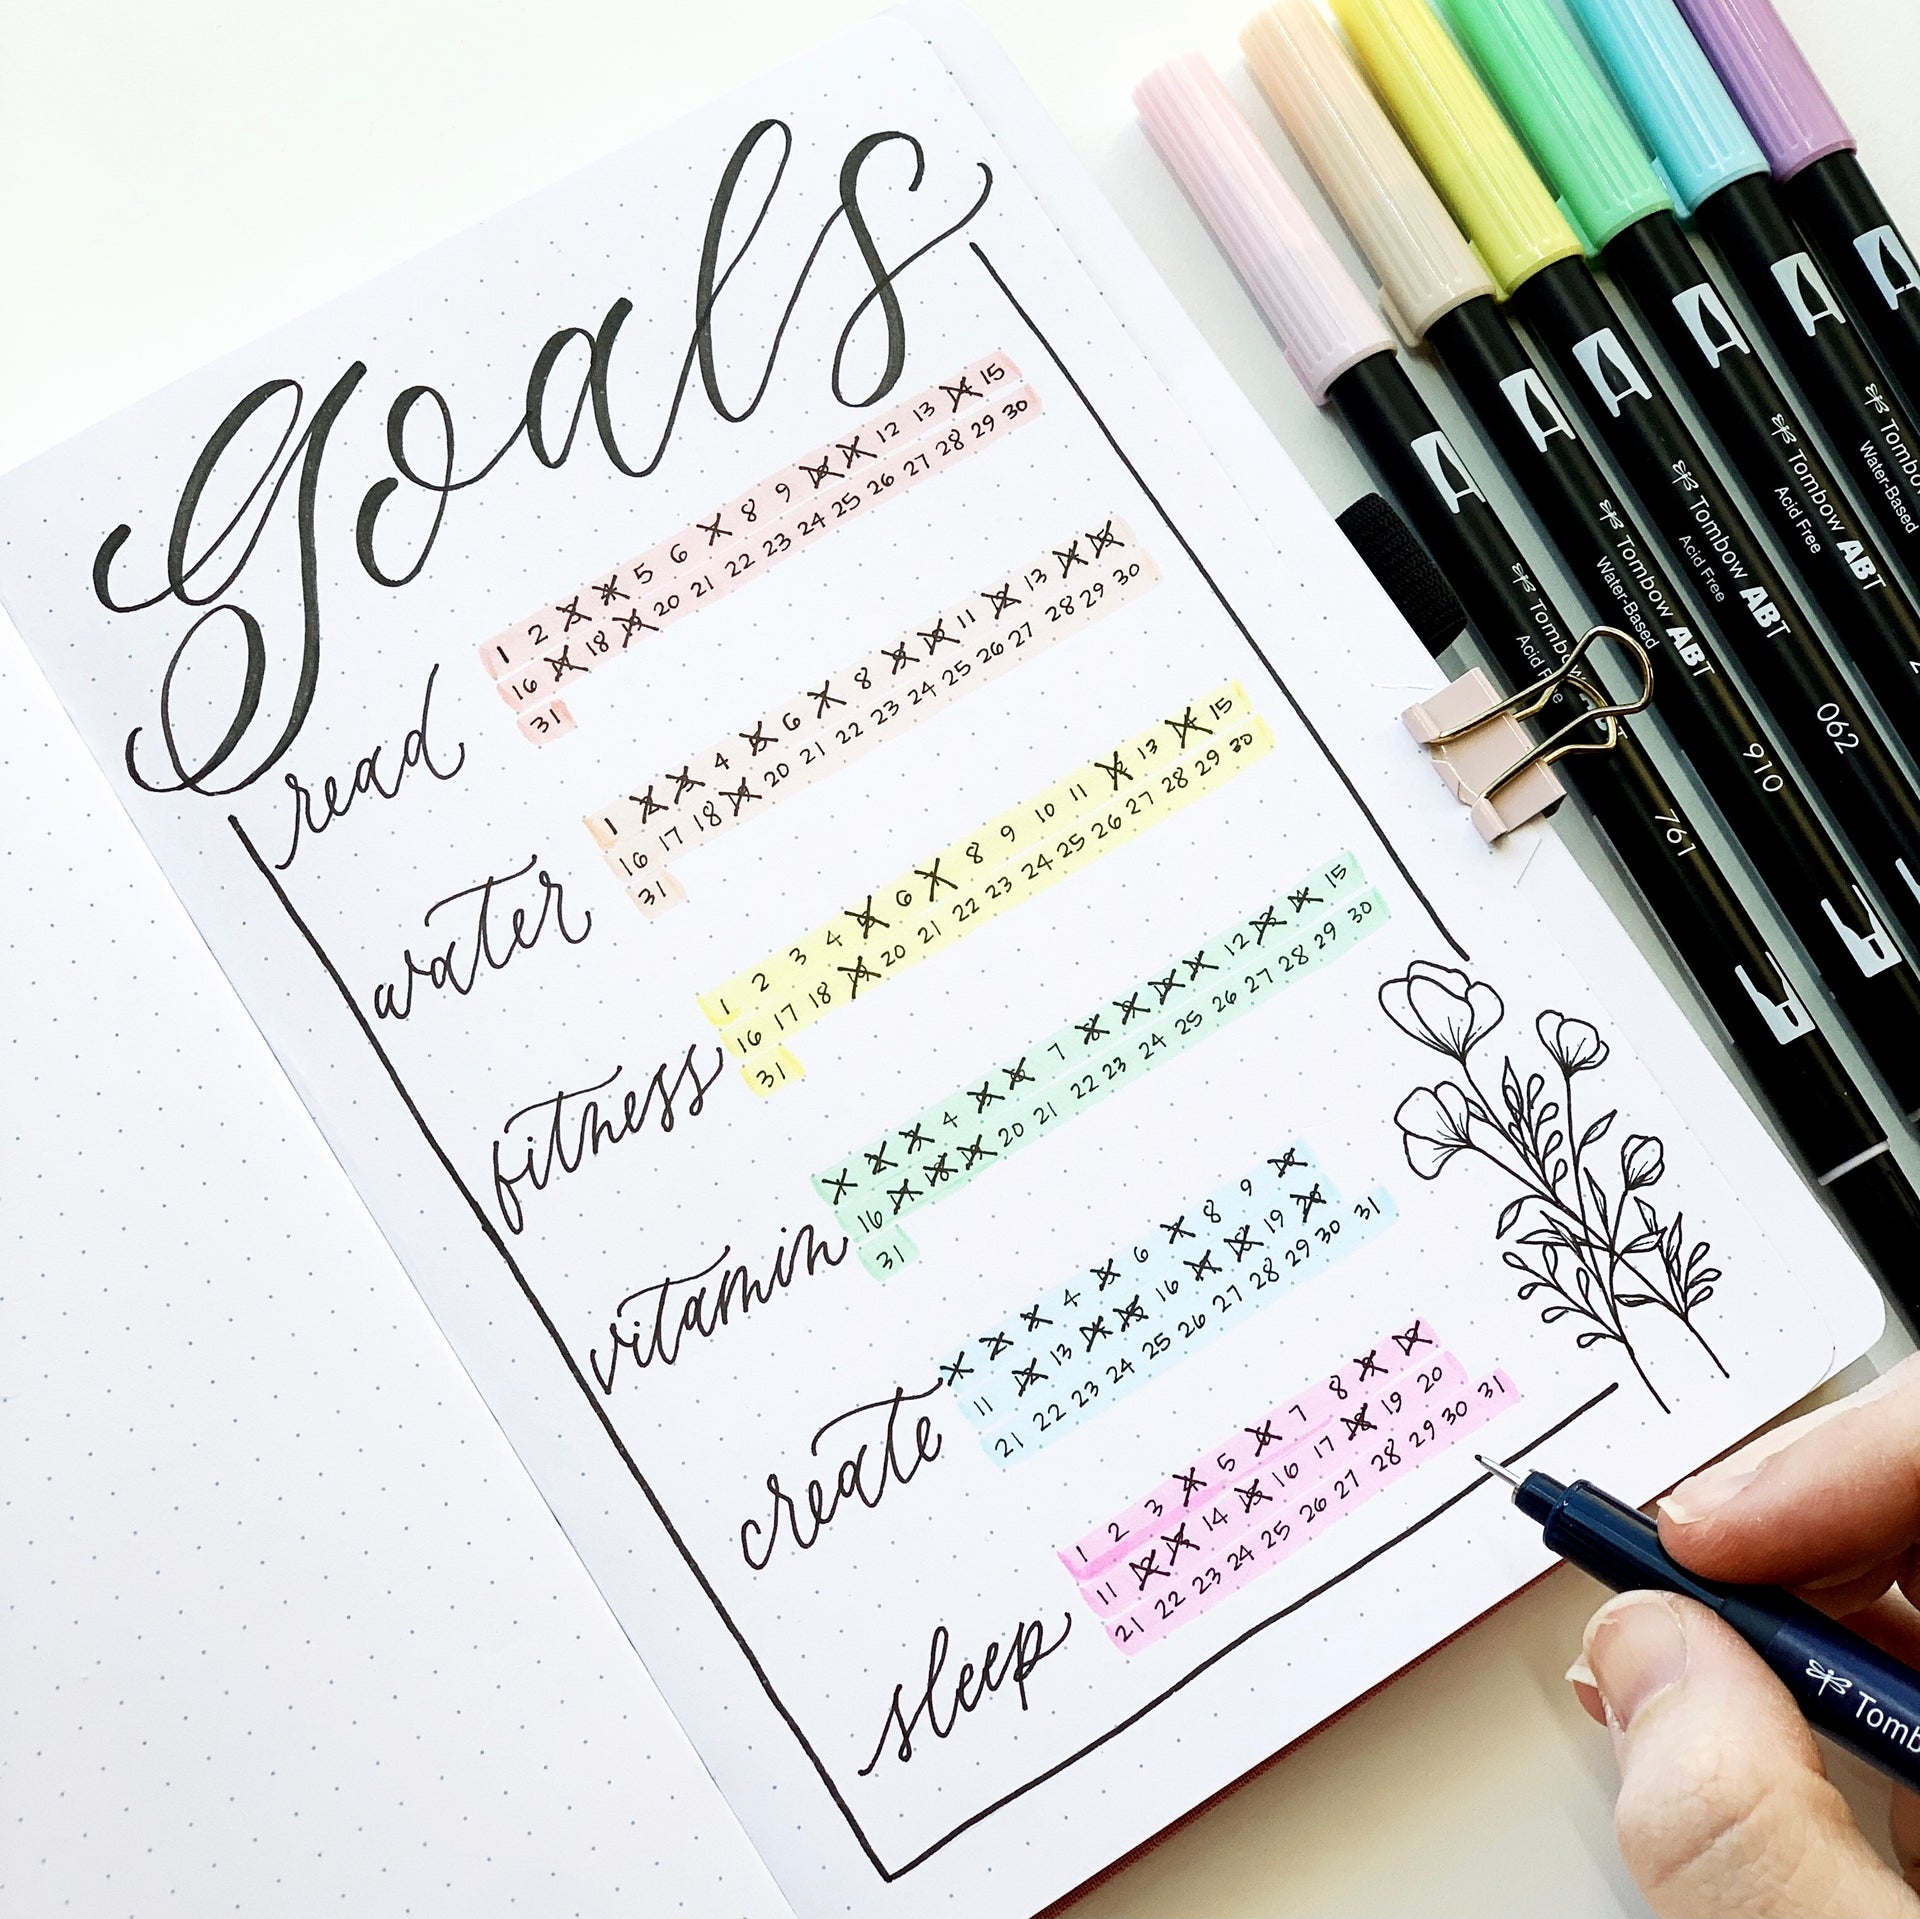 Goals
read
1 2 3 4 5 6 7 8 9 10 11 12 13 14 15
16 17 18 19 20 21 22 23 24 25 26 27 28 29 30
31
water
1 2 3 4 5 6 7 8 9 10 11 12 13 14 15
16 17 18 19 20 21 22 23 24 25 26 27 28 29 30
31
fitness
1 2 3 4 5 6 7 8 9 10 11 12 13 14 15
16 17 18 19 20 21 22 23 24 25 26 27 28 29 30
31
vitamin
1 2 3 4 5 6 7 8 9 10 11 12 13 14 15
16 17 18 19 20 21 22 23 24 25 26 27 28 29 30
31
create
1 2 3 4 5 6 7 8 9 10
11 12 13 14 15 16 17 18 19 20
21 22 23 24 25 26 27 28 29 30 31
sleep
1 2 3 4 5 6 7 8 9 10
11 12 13 14 15 16 17 18 19 20
21 22 23 24 25 26 27 28 29 30 31
Tombow
Acid Free
761
Tombow ABT
Water-Based
910
Tombow ABT
Acid Free
062
Tombow ABT
Acid Free
Water-Based